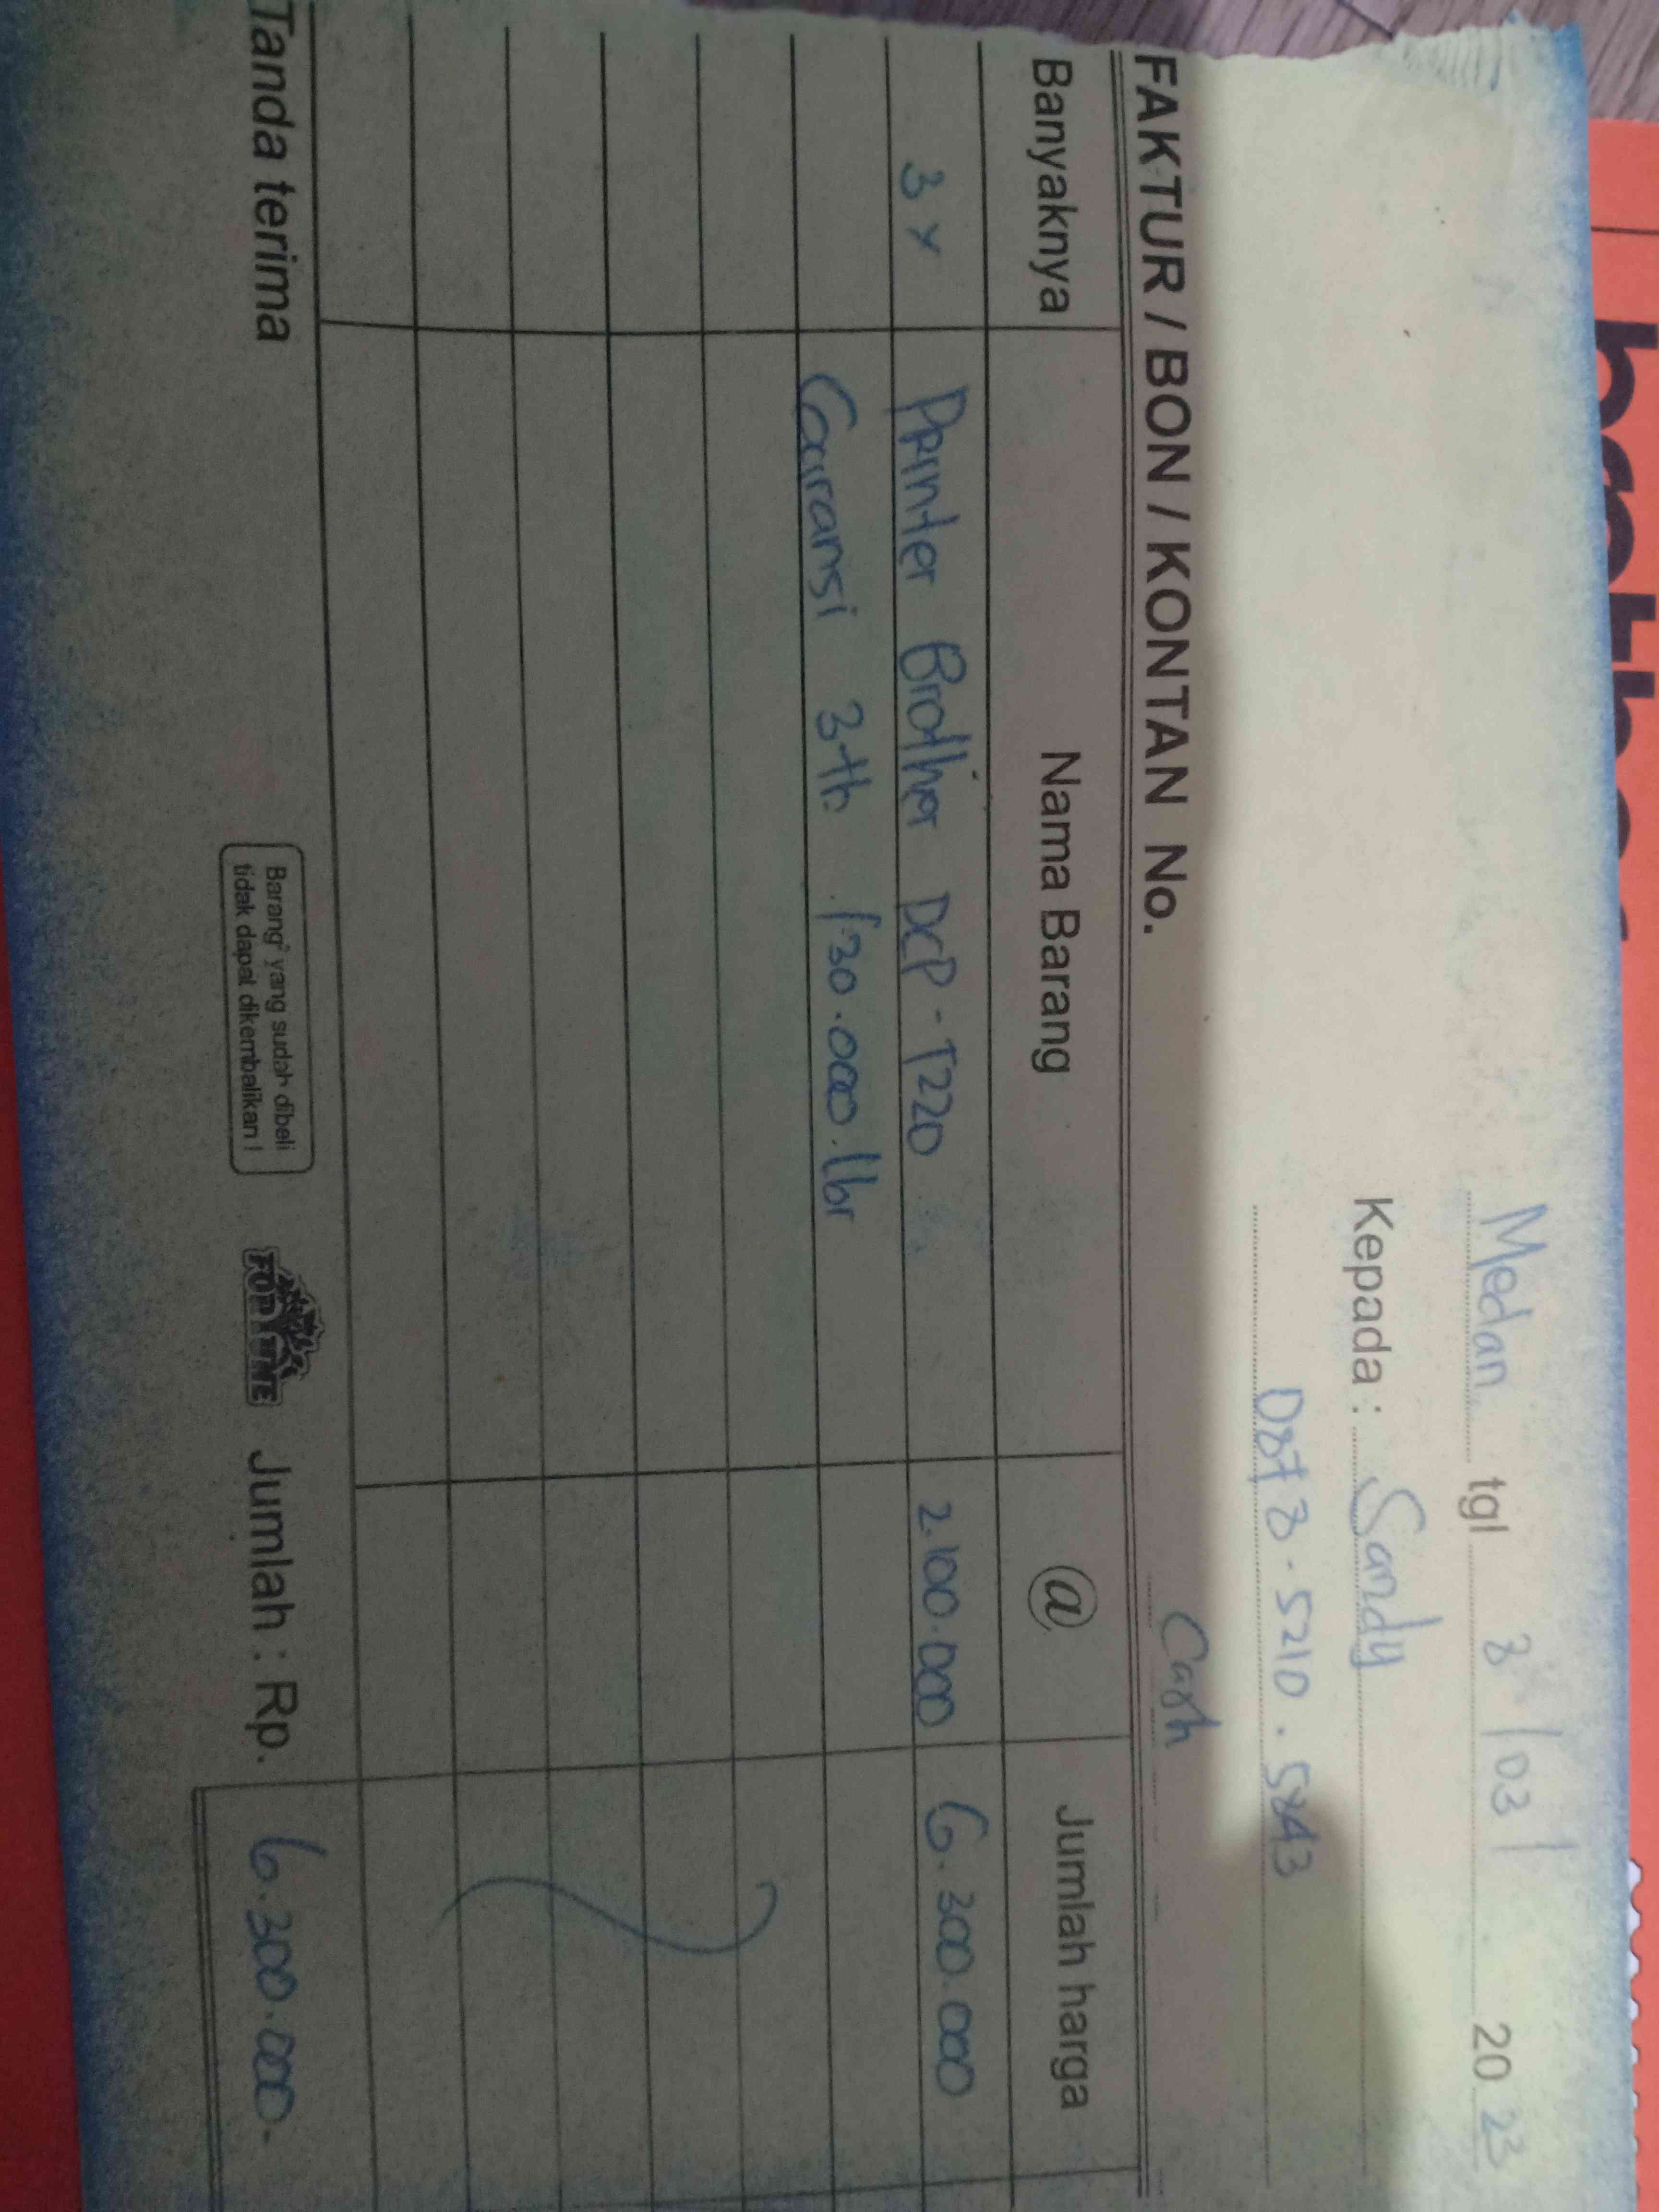 Medan tgl 8/03/ 2023
Kepada : Sandy
0878-5210.5843
FAKTUR / BON / KONTAN No. Cash
Banyaknya Nama Barang @ Jumlah harga
3 x Printer Brother DCP-T220 2.100.000 6.300.000
Garansi 3th /30.000.lbr
Tanda terima
Barang² yang sudah dibeli
tidak dapat dikembalikan !
Jumlah : Rp. 6.300.000.-